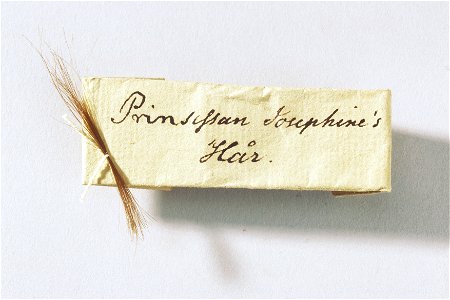 Prinsessan Josephine's
Hår.